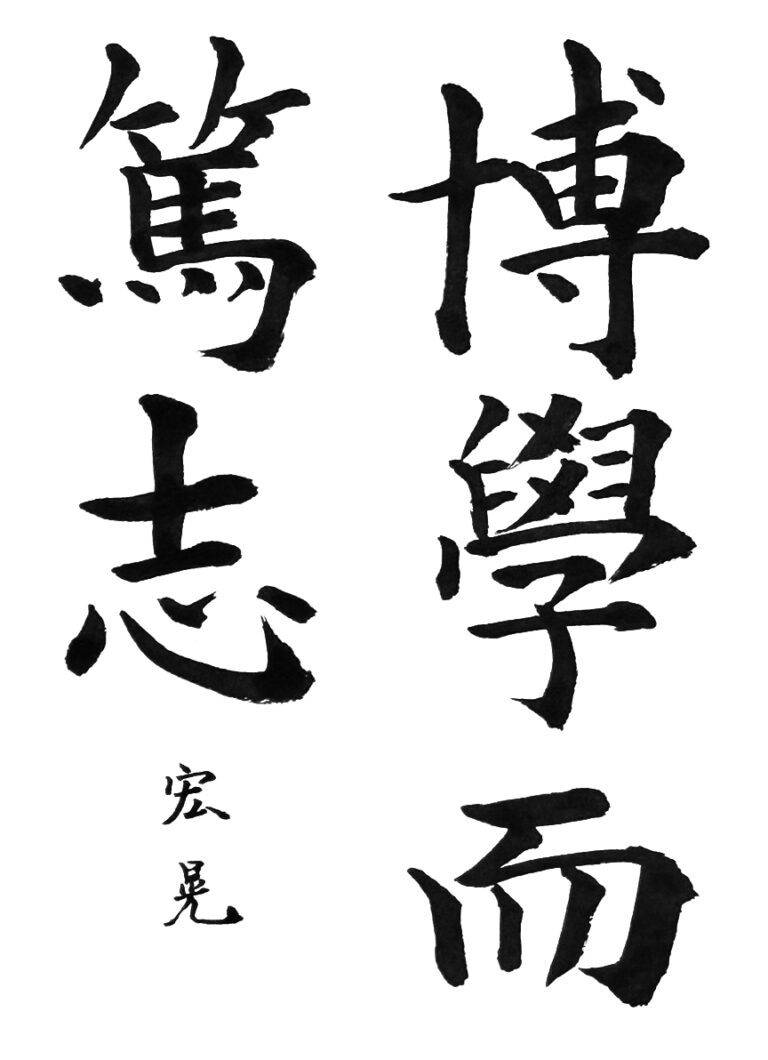 博學而
篤志
宏晃